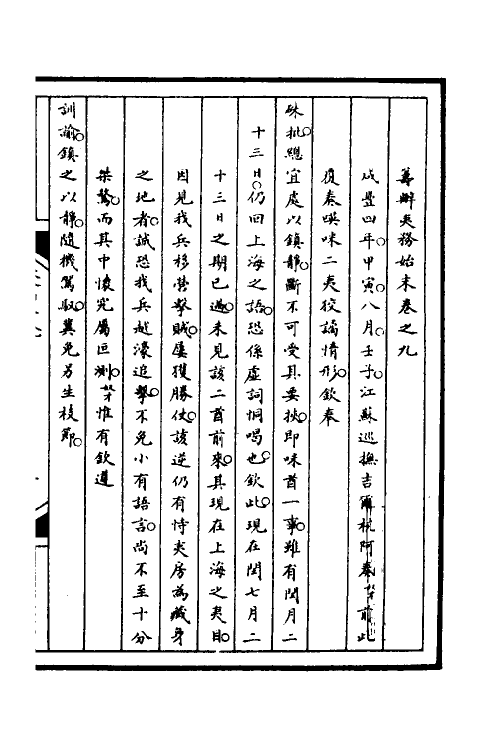 籌辦夷務始末卷之九
咸豐四年甲寅八月壬子江蘇巡撫吉爾杭阿奏奴才前此
復奏暎咪二夷狡譎情形欽奉
硃批總宜處以鎮靜斷不可受其要挾即咪酋一事雖有閏月二
十三日仍回上海之語恐係虛詞恫喝也欽此現在閏七月二
十三日之期已過未見該二酋前來其現在上海之夷目
因見我兵移營擊賊屢獲勝仗該逆仍有恃夷房為藏身
之地者誠恐我兵越濠追擊不免小有語言尚不至十分
桀驁而其中懷究屬叵測奴才惟有欽遵
訓諭鎮之以靜隨機駕馭冀免另生枝節